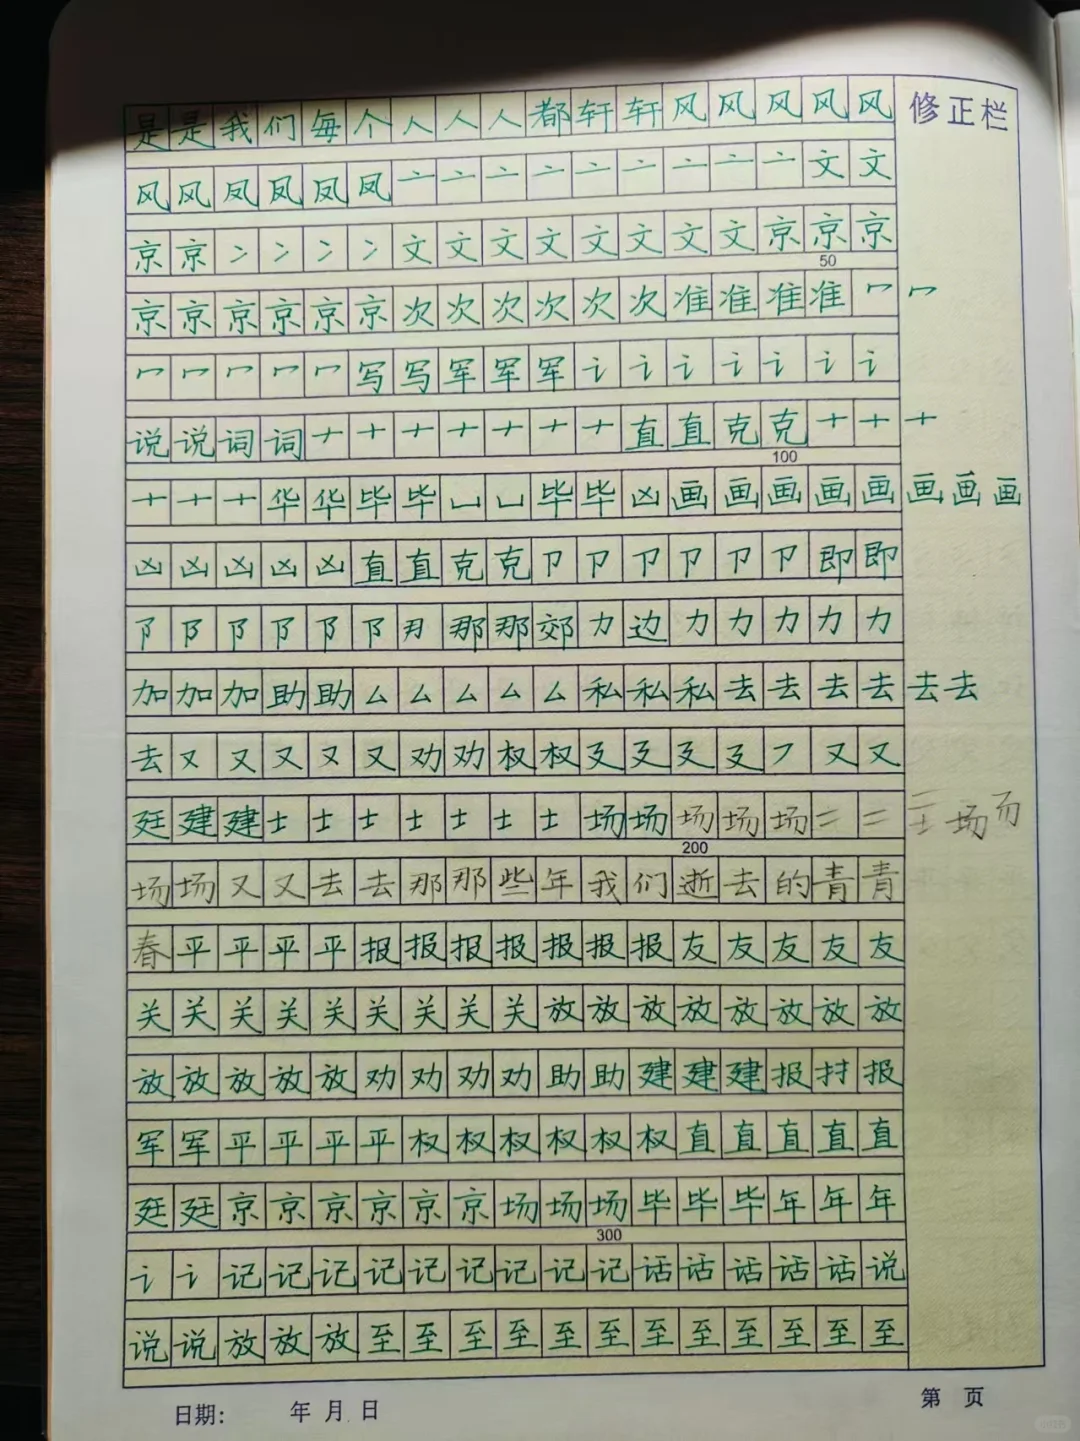 是是我们每个人人人都轩轩风风风风风 修正栏
风风凤凤凤凤亠亠亠亠亠亠亠亠亠文文
京京冫冫冫冫文文文文文文文文京京京
50
京京京京京京次次次次次次准准准准冖冖
冖冖冖冖冖写写军军军讠讠讠讠讠讠讠
说说词词十十十十十十十直直克克十十十
100
十十十华华毕毕凵凵毕毕凶画画画画画画画画
凶凶凶凶凶直直克克卩卩卩卩卩卩即即
阝阝阝阝阝阝那那郊力边力力力力力
加加加助助厶厶厶厶厶私私私去去去去去去
去又又又又又劝劝权权廴廴廴廴又又
廷建建士士士士士士士场场场场场二二场
200
场场又又去去那那些年我们逝去的青青
春平平平平报报报报报报报友友友友友
关关关关关关关关关放放放放放放放放
放放放放放劝劝劝劝助助建建建报报
军军平平平平权权权权权权直直直直直
廷廷京京京京京京场场场毕毕毕年年年
300
讠讠记记记记记记记记记话话话话话说
说说放放放至至至至至至至至至至至至
日期: 年 月 日
第 页